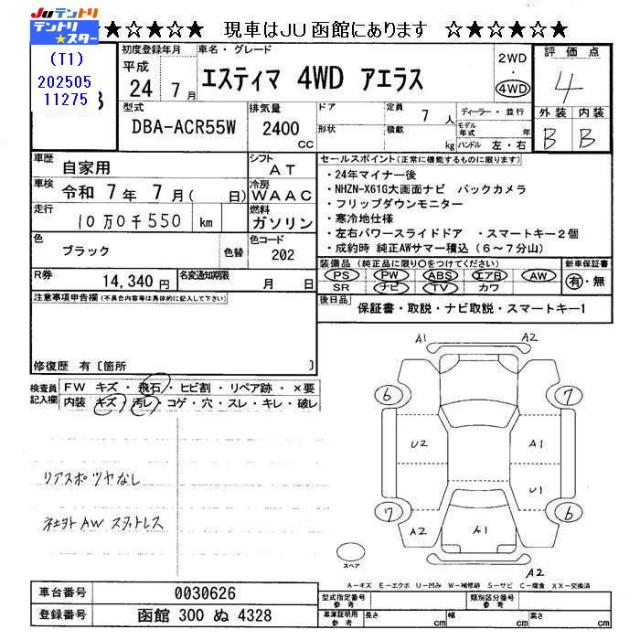 JUテントリ ☆★☆★☆★ 現車はJU函館にあります ☆★☆★☆★
テントリ★スター
(T1)
202505
11275
初度登録年月 車名・グレード 評価点
平成 24年 7月 エスティマ 4WD アエラス 2WD・4WD 4
型式 排気量 ドア 定員 7人 ディーラー・並行 外装 内装
DBA-ACR55W 2400cc 形状 積載 kg モデル年式 年 ハンドル 左・右 B B
車歴 自家用 シフト AT セールスポイント(正常に機能するものに限ります)
車検 令和 7年 7月( 日) 冷房 WAAC
・24年マイナー後
・NHZN-X61G大画面ナビ バックカメラ
・フリップダウンモニター
・寒冷地仕様
・左右パワースライドドア ・スマートキー2個
・成約時 純正AWサマー積込(6~7分山)
走行 10万0千550km 燃料 ガソリン
色 ブラック 色替 色コード 202
装備品(純正品に限り○をつけてください) 新車保証書
PS PW ABS エアB AW 有・無
SR ナビ TV カワ
R券 14,340円 名変通知期限 月 日
後日品 保証書・取説・ナビ取説・スマートキー1
注意事項申告欄(不具合内容は具体的に記入して下さい)
修復歴 有〔箇所 〕
検査員記入欄 FW キズ・飛石・ヒビ割・リペア跡・×要
内装 キズ・汚レ・コゲ・穴・スレ・キレ・破レ
リアスポツヤなし
社外AW スタットレス
A1 A2
6 7
U2 A1
U1
7 6
A2 A1
A2
スペア
A-キズ E-エクボ U-凹み W-補修跡 S-サビ C-腐食 XX-交換済
車台番号 0030626
登録番号 函館 300 ぬ 4328
型式指定番号 参考 類別区分番号 参考
車庫証明用 参考 長さ cm 幅 cm 高さ cm